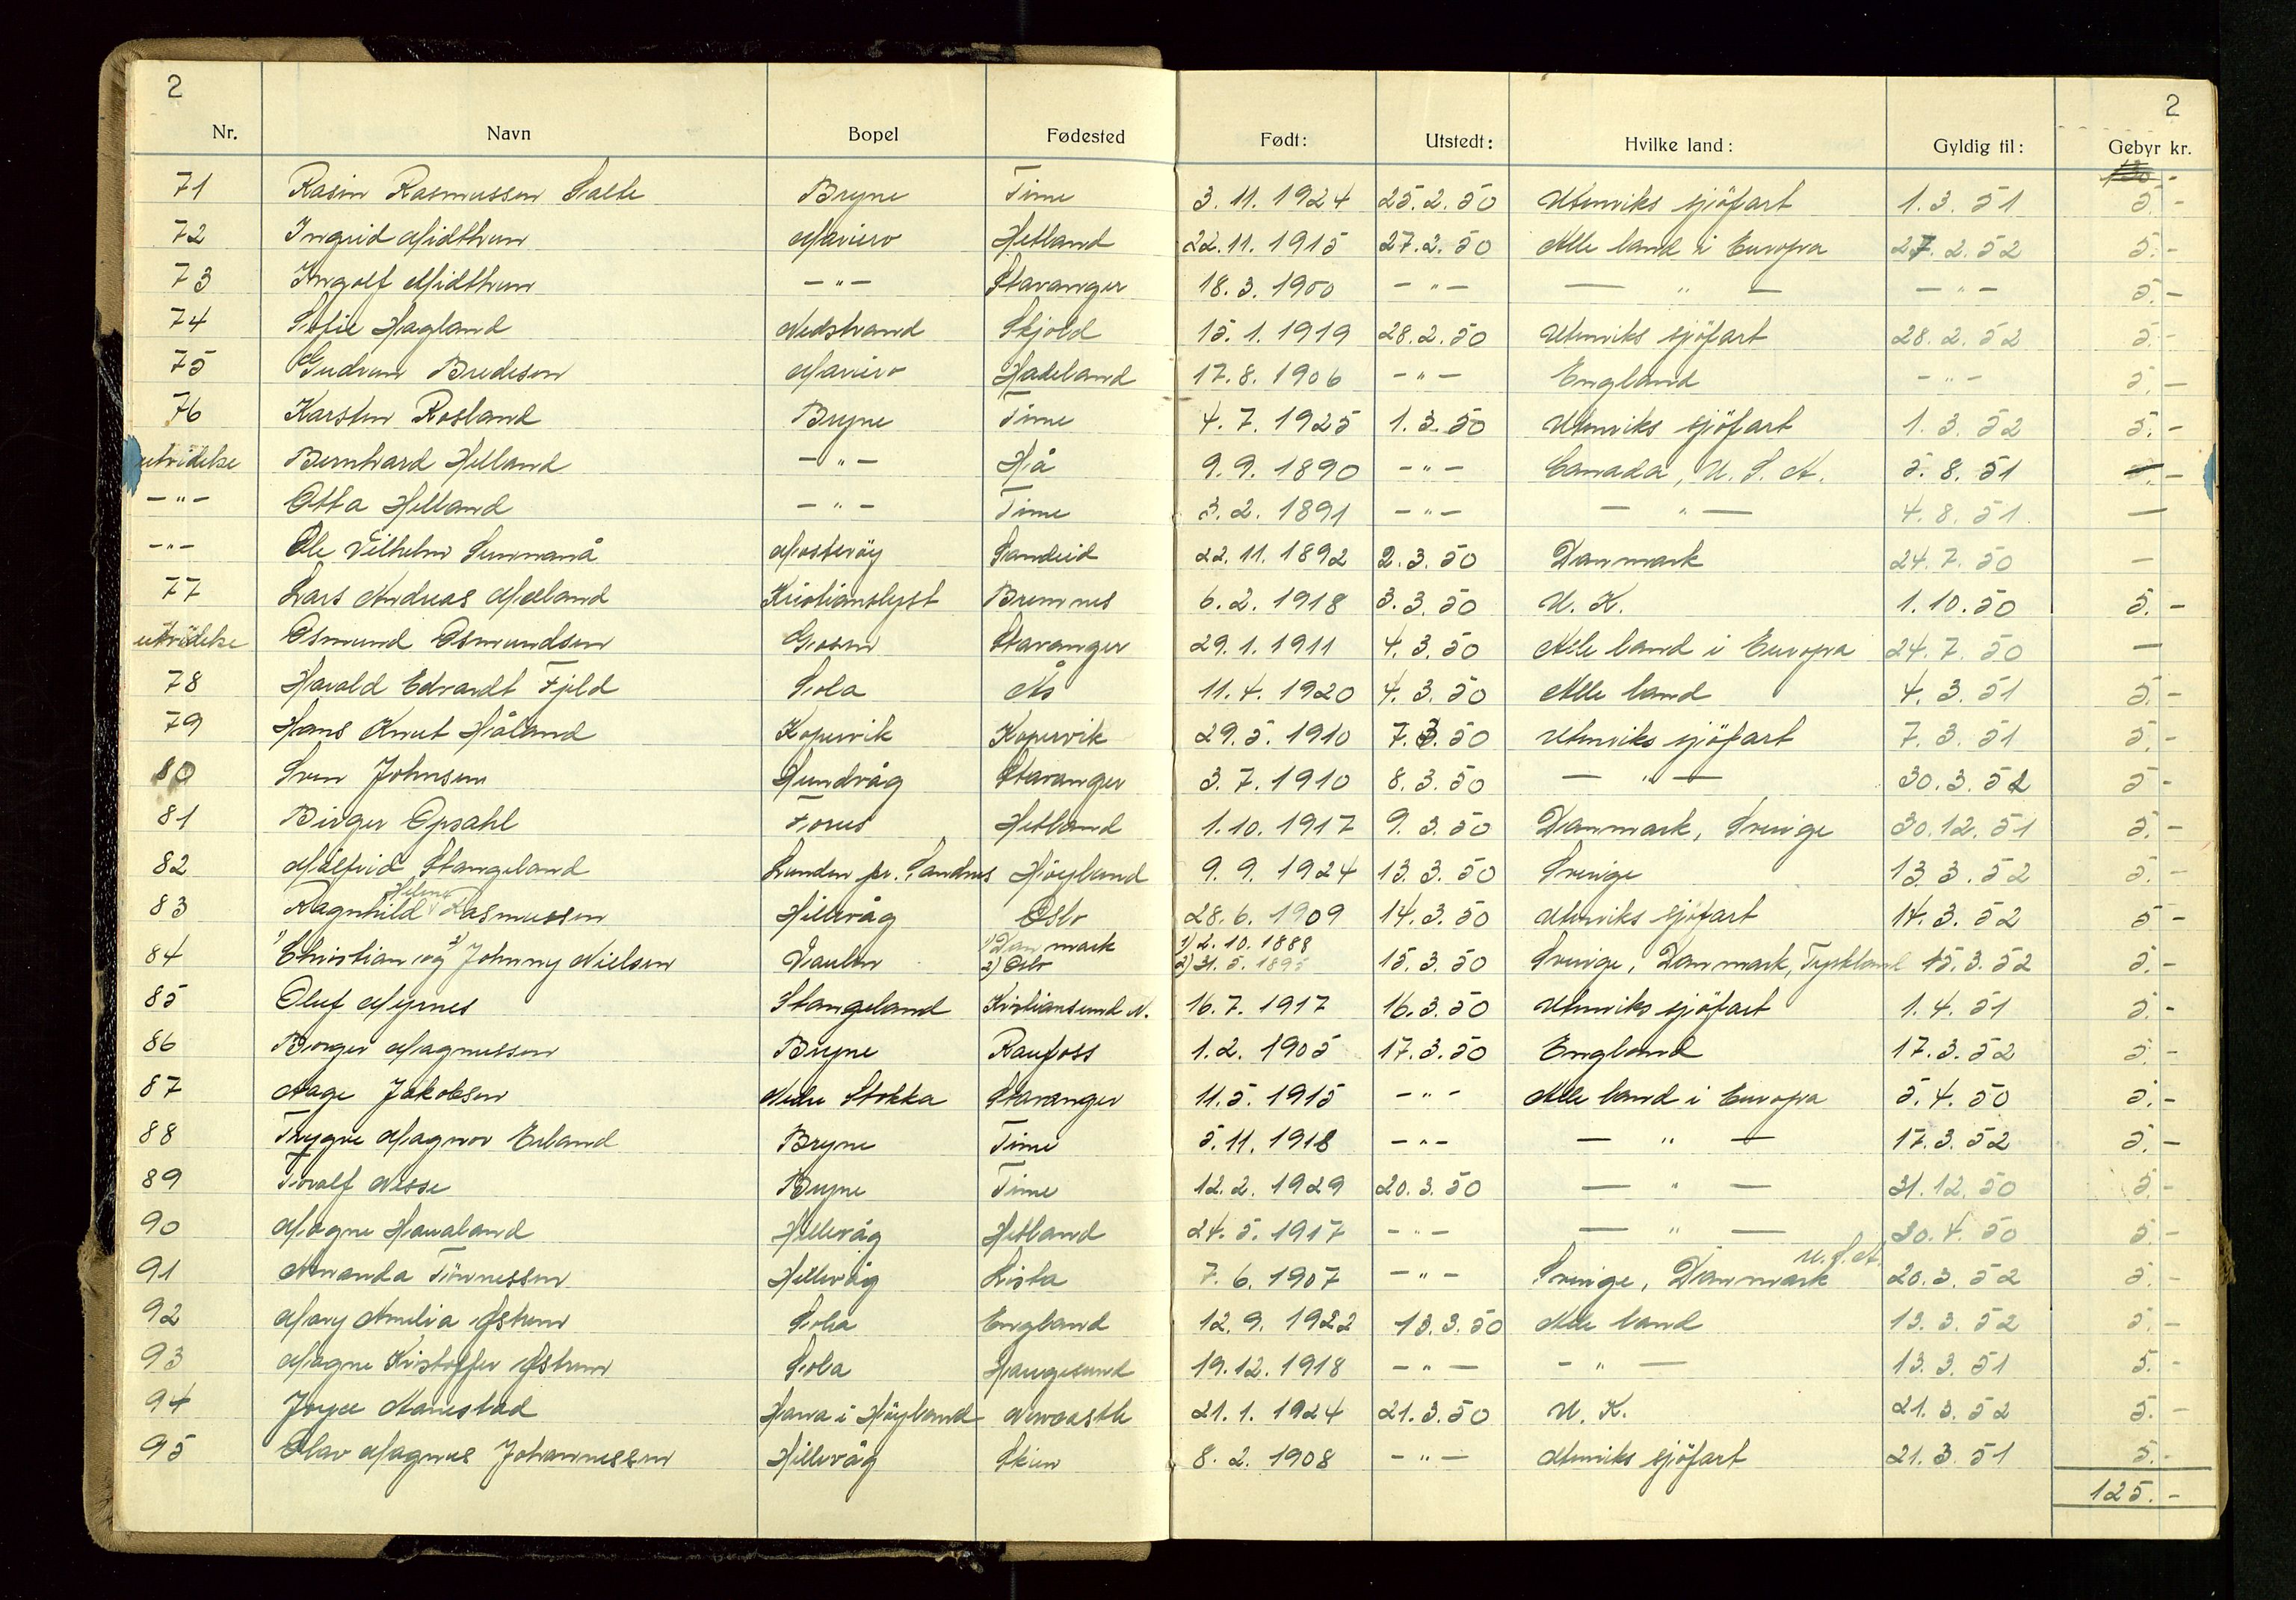 2 2
Nr. Navn Bopel Fødested Født: Utstedt: Hvilke land: Gyldig til: Gebyr kr.
71 Rasin Rasmussen Salte Bryne Time 3.11.1924 25.2.50 Utenriks sjöfart 1.3.51 5.-
72 Ingrid Midthun Mariero Hetland 22.11.1915 27.2.50 Alle land i Europa 27.2.52 5.-
73 Ingolf Midthun -"- Stavanger 18.3.1900 -"- — " — -"- 5.-
74 Sofie Hagland Nedstrand Skjold 15.1.1919 28.2.50 Utenriks sjöfart 28.2.52 5.-
75 Gudrun Bredesen Mariero Hadeland 17.8.1906 -"- England -"- 5.-
76 Karsten Rosland Bryne Time 4.7.1925 1.3.50 Utenriks sjöfart 1.3.52 5.-
utvidelse Bernhard Helland -"- Hå 9.9.1890 -"- Canada, U.S.A. 5.8.51 -
-"- Otta Helland -"- Time 3.2.1891 -"- — " — 4.8.51 —
-"- Ole Vilhelm Sunnanå Mosteröy Sandeid 22.11.1892 2.3.50 Danmark 24.7.50 —
77 Lars Andreas Mæland Kristianslyst Bremnes 6.2.1918 3.3.50 U.K. 1.10.50 5.-
utvidelse Osmund Osmundsen Gosen Stavanger 29.1.1911 4.3.50 Alle land i Europa 24.7.50 —
78 Harald Edvardt Fjeld Sola Ås 11.4.1920 4.3.50 Alle land 4.3.51 5.-
79 Hans Knut Håland Kopervik Kopervik 29.5.1910 7.3.50 Utenriks sjöfart 7.3.51 5.-
80 Sven Johnsen Hundvåg Stavanger 3.7.1910 8.3.50 — " — 30.3.52 5-
81 Birger Opsahl Forus Hetland 1.10.1917 9.3.50 Danmark, Sverige 30.12.51 5.-
82 Målfrid Stangeland Lunden pr. Sandnes Höyland 9.9.1924 13.3.50 Sverige 13.3.52 5.-
83 Ragnhild Helene Rasmussen Hillevåg Oslo 28.6.1909 14.3.50 Utenriks sjöfart 14.3.52 5-
84 1) Christian og 2) Johnny Nielsen Vaulen 1) Danmark 2) Oslo 1) 2.10.1888 2) 31.5.1895 15.3.50 Sverige, Danmark, Tyskland 15.3.52 5.-
85 Oluf Myrnes Stangeland Kristiansund N. 16.7.1917 16.3.50 Utenriks sjöfart 1.4.51 5.-
86 Borger Magnussen Bryne Raufoss 1.2.1905 17.3.50 England 17.3.52 5.-
87 Aage Jakobsen Nedre Stokka Stavanger 11.5.1915 -"- Alle land i Europa 5.4.50 5.-
88 Trygve Magnor Erland Bryne Time 5.11.1918 -"- — " — 17.3.52 5.-
89 Toralf Nesse Bryne Time 12.2.1929 20.3.50 — " — 31.12.50 5.-
90 Magne Haualand Hillevåg Hetland 24.5.1917 -"- — " — 30.4.50 5.-
91 Amanda Tönnessen Hillevåg Lista 7.6.1907 -"- Sverige, Danmark U.S.A. 20.3.52 5.-
92 Mary Amelia Østrem Sola England 12.9.1922 13.3.50 Alle land 13.3.52 5.-
93 Magne Kristoffer Østrem Sola Haugesund 19.12.1918 -"- -"- 13.3.51 5.-
94 Joyce Nanestad Hana i Höyland Newcastle 21.1.1924 21.3.50 U.K. 21.3.52 5.-
95 Olav Magnus Johannessen Hillevåg Skien 8.2.1908 -"- Utenriks sjöfart 21.3.51 5.-
125.-